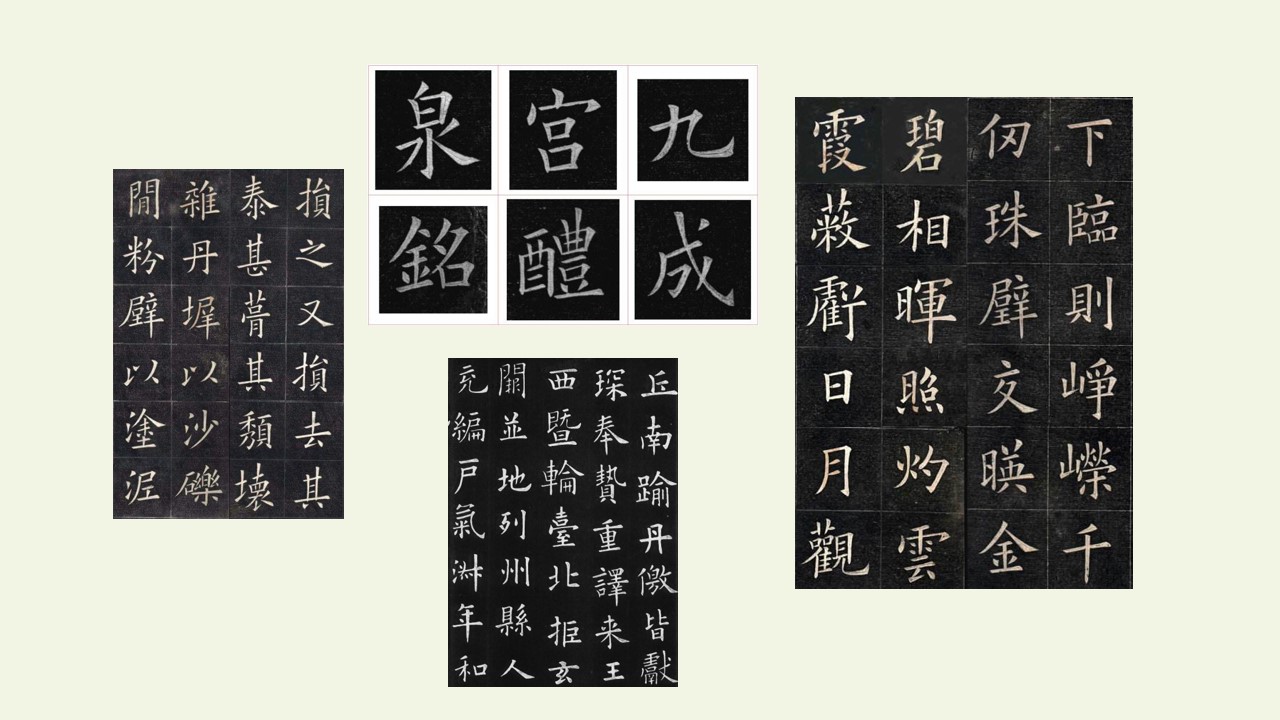 損之又損去其
泰甚葺其頹壞
雜丹墀以沙礫
間粉壁以塗泥
九成
宮醴
泉銘
丘南踰丹徼皆獻
琛奉贄重譯来王
西暨輪臺北拒玄
闕並地列州縣人
充編戸氣淋年和
下臨則崢嶸千
仞珠璧交暎金
碧相暉照灼雲
霞蔽虧日月觀